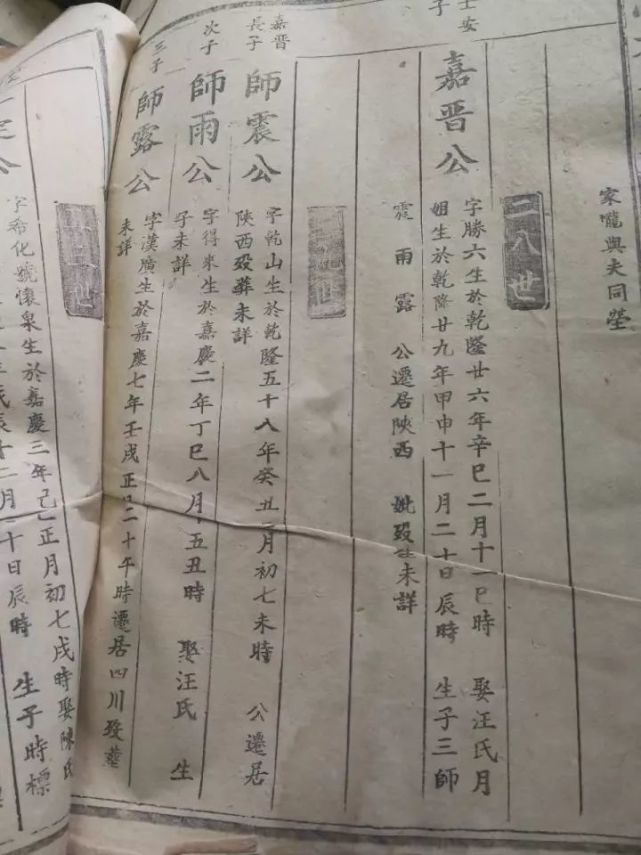 家嚨與夫同塋
二八世
士安
子
嘉晋公
字勝六生於乾隆廿六年辛巳二月十一巳時 娶汪氏月
姐生於乾隆廿九年甲申十一月二十日辰時 生子三師
震雨露 公遷居陝西 妣殁葬未詳
世
嘉晋
長子
師震公
字乾山生於乾隆五十八年癸丑二月初七未時 公遷居
陝西殁葬未詳
次子
師雨公
字得來生於嘉慶二年丁巳八月五丑時 娶汪氏 生
子未詳
三子
師露公
字漢廣生於嘉慶七年壬戌正月二十午時遷居四川殁葬
未詳
世
公
字希化號懷泉生於嘉慶三年己正月初七戌時娶陳氏
十二月二十日辰時 生子時標